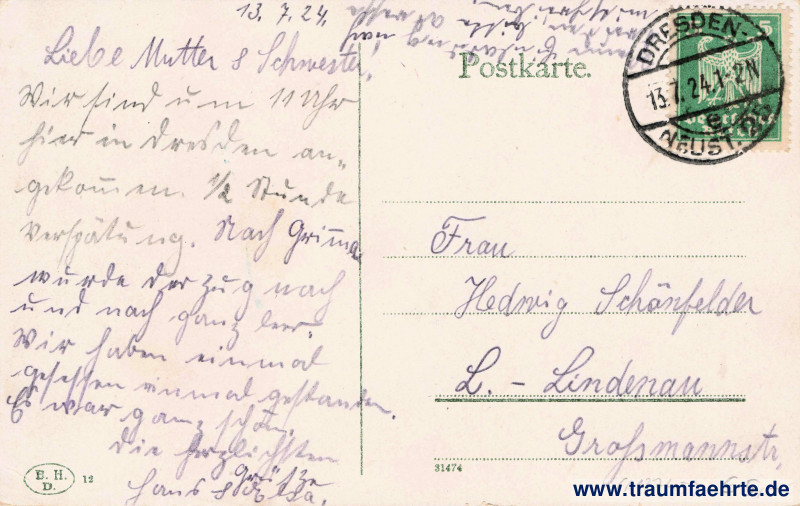 13. 7. 24.
Liebe Mutter & Schwester!
Wir sind um 11 Uhr
hier in Dresden an=
gekommen. 1/2 Stunde
Verspätung. Nach Grimma
wurde der Zug nach
und nach ganz leer.
Wir haben einmal
gesessen einmal gestanden.
Es war ganz schön.
Die herzlichsten
Grüsse
Hans &
bitte
Postkarte.
DRESDEN-
13.7.24.1-2N
NEUST.
5
Frau
Hedwig Schönfelder
L. - Lindenau
Grossmannstr.
B. H.
D.
12
31474
www.traumfaehrte.de